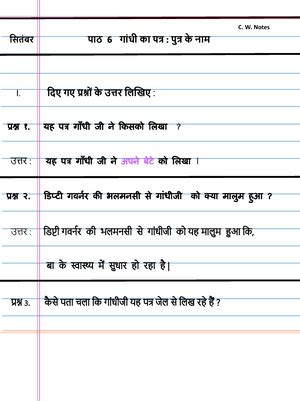 C. W. Notes
सितंबर पाठ 6 गांधी का पत्र : पुत्र के नाम
I. दिए गए प्रश्नों के उत्तर लिखिए :
प्रश्न १. यह पत्र गाँधी जी ने किसको लिखा ?
उत्तर : यह पत्र गाँधी जी ने अपने बेटे को लिखा ।
प्रश्न २. डिप्टी गवर्नर की भलमनसी से गांधीजी को क्या मालुम हुआ ?
उत्तर : डिप्टी गवर्नर की भलमनसी से गांधीजी को यह मालुम हुआ कि,
बा के स्वास्थ्य में सुधार हो रहा है|
प्रश्न 3. कैसे पता चला कि गांधीजी यह पत्र जेल से लिख रहे हैं ?